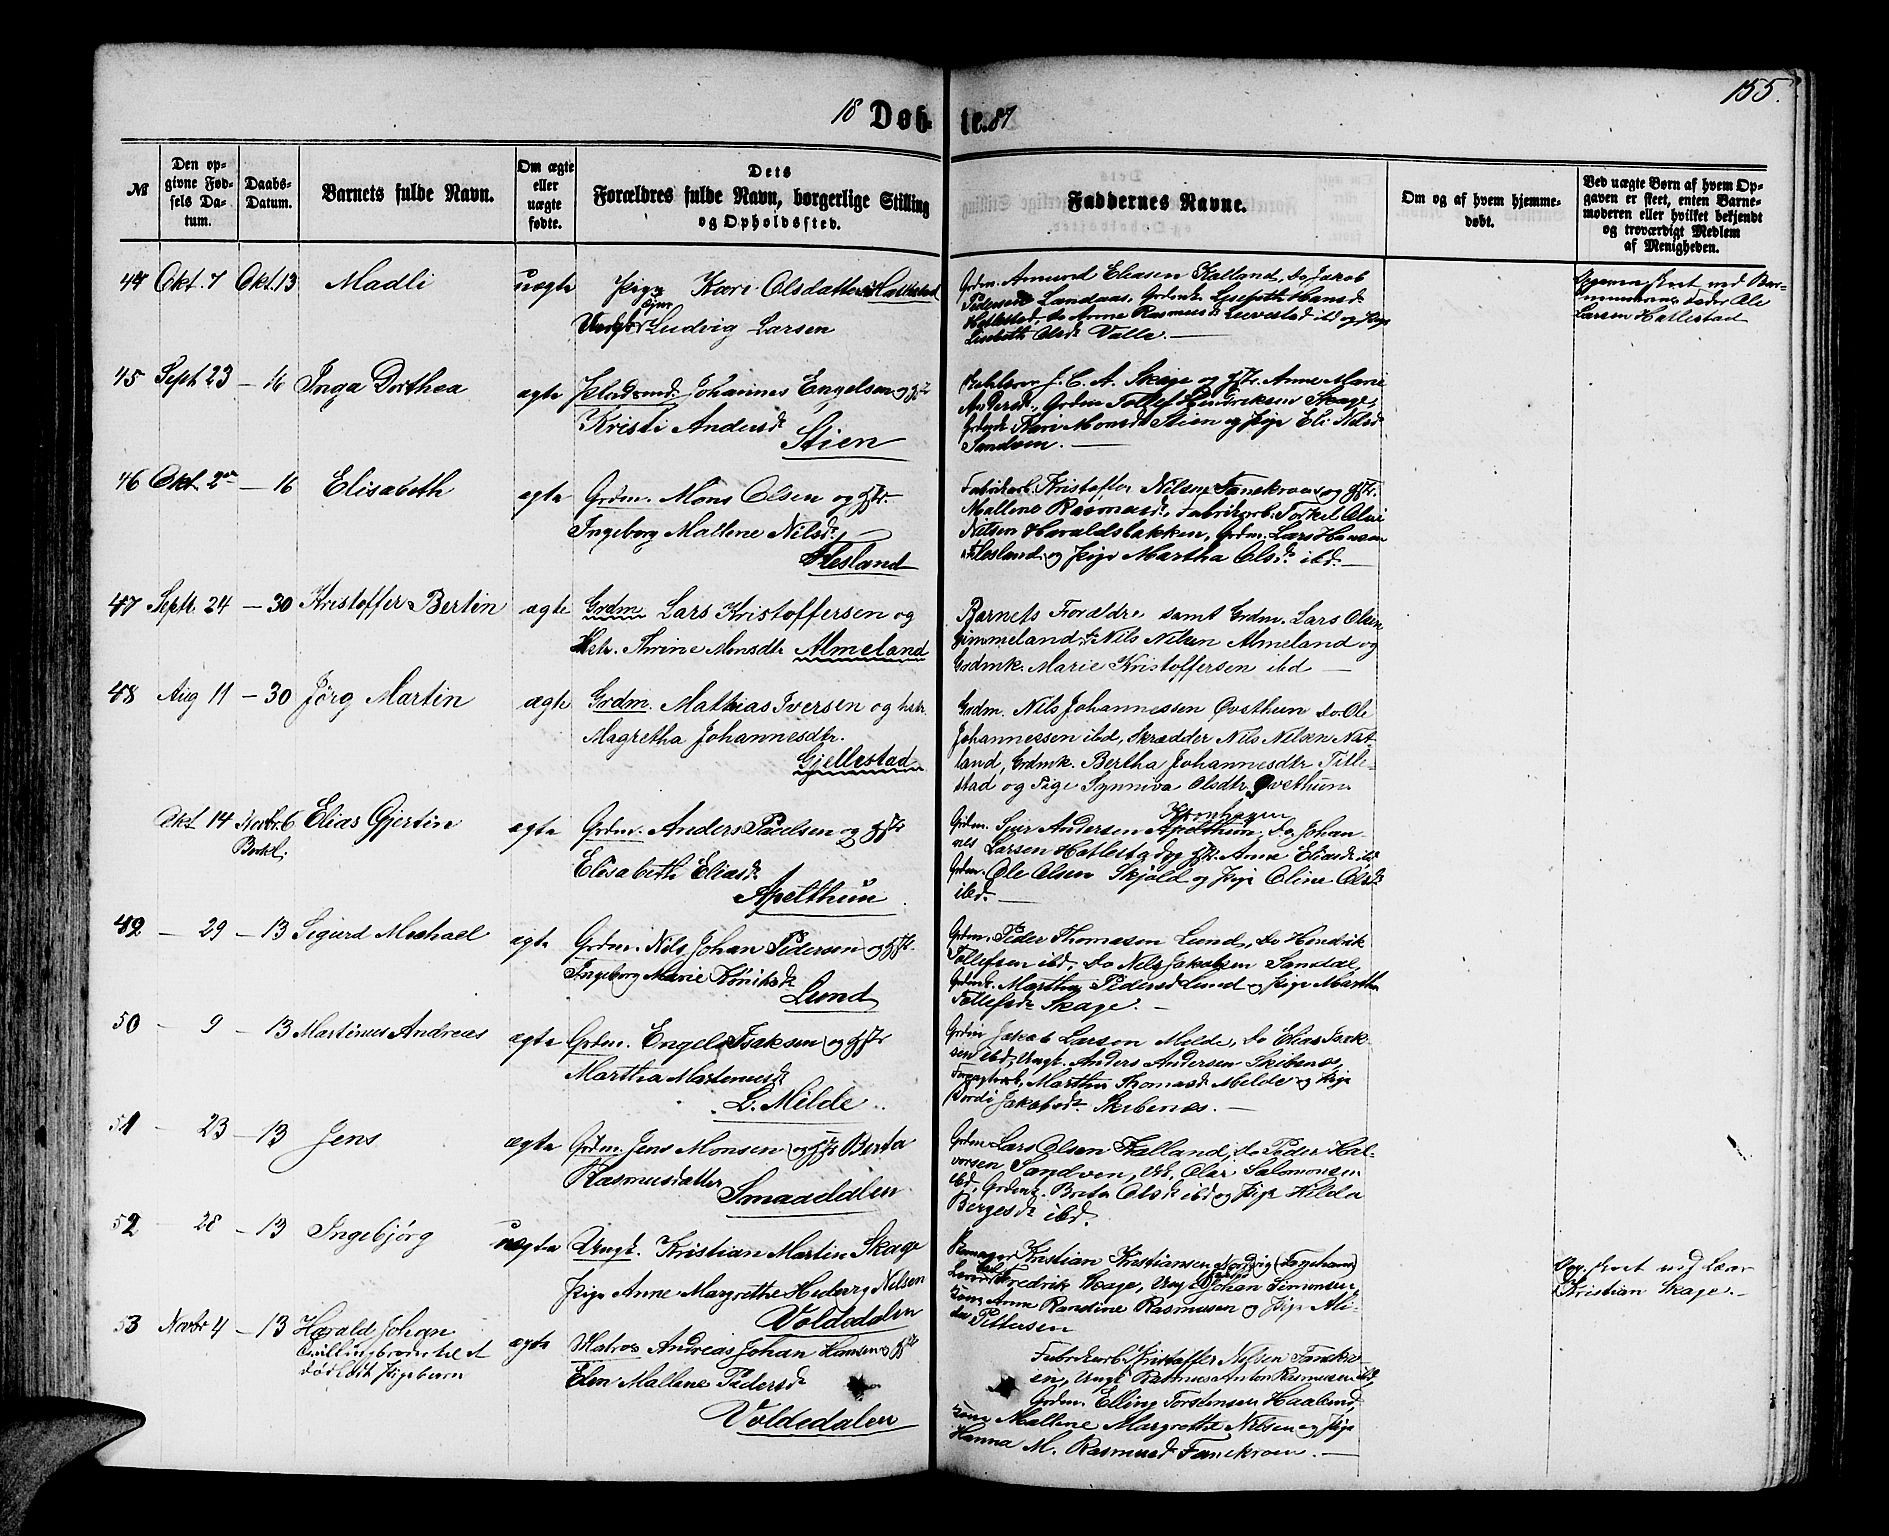 155.
18 Døb- te. 87
№
Den op-
givne Fød-
sels Da-
tum.
Daabs-
Datum.
Barnets fulde Navn.
Om ægte
eller
uægte
fødte.
Dets
Forældres fulde Navn, borgerlige Stilling
og Opholdssted.
Faddernes Navne.
Om og af hvem hjemme-
døbt.
Ved uægte Børn af hvem Op-
gaven er skeet, enten Barne-
moderen eller hvilket bekjendt
og troværdigt Medlem
af Menigheden.
44 Okt. 7 Okt. 13 Madli uægte Pige Kari Olsdatter Hatlestad
Ungkar Ludvig Larsen
Grdm. Amund Eliasen Kalland, Do Jacob
Pedersen Landaas, Grdmk. Lisebeth Hansd.
Hatlestad, do Anne Rasmusd. Lievestad ibd og Pige
Lisebeth Olsd. Valle. —
Larsen Hatlestad
45 Sept 23 — 16 Inga Dorthea ægte Pladsmd. Johannes Engelsen og Hst
Kristi Andersd.
Stien
J. C. A. Skage og Hstr. Anne Marie
Andersd., Grdm Tollef Hendriksen Skage,
Grdmk Kari Monsd Stien og Pige Eli Nilsd
Sandven. —
46 Okt. 2den — 16 Elisabeth ægte Grdm. Mons Olsen og Hstr.
Ingeborg Mallene Nilsd.
Flesland
Fabrikarb. Kristoffer Nilsen Fanekroen og Hstr.
Mallene Rasmusd., Fabrikarb. Torkel Olai
Nilsen Haraldsbakken, Grdm. Lars Hansen
Flesland og Pige Martha Olsd. ibd. —
47 Septr. 24 — 30 Kristoffer Bertin ægte Grdm Lars Kristoffersen og
Hstr. Thrine Monsdtr Almeland
Barnets Forældre samt Grdm. Lars Olsen
Gimmeland, do Nils Nilsen Almeland og
Grdmk. Marie Kristoffersen ibd —
48 Aug 11 — 30 Jørg Martin ægte Grdm. Mathias Iversen og hstr.
Magretha Johannesdtr.
Gjellestad
Grdm. Nils Johannessen Øvsthun do. Ole
Johannessen ibd, Skrædder Nils Nilsen Nat-
land, Grdmk. Bertha Johannesdtr Title-
stad og Pige Synniva Olsdtr. Øvsthun.
Okt 14 Novbr. 6 Elias Gjertin ægte Grdm. Anders Paulsen og Hstr
Elisabeth Eliasd.
Apelthun
Grdm. Sjur Andersen Apelthun, Do Johan-
nes Larsen Hatlestad og Hstr. Anne Eliasd. ibd
Grdm. Ole Olsen Skjold og Pige Oline Olsd.
ibd. —
49 — 29 — 13 Sigurd Michael ægte Grdm. Nils Johan Pedersen og Hstr.
Ingeborg Marie Hendriksd.
Lund
Grdm. Peder Thomasen Lund, Do Hendrik
Tollefsen ibd, Do Nils Jakobsen Sandal,
Grdmk. Martha Pedersd Lund og Pige Martha
Tollefsd. Skage. —
50 — 9 — 13 Martinus Andreas ægte Grdm. Engel Isaksen og Hstr
Martha Martinusd.
L. Milde
Grdm Jakob Larsen Milde, Do Elias Isak-
sen ibd, Ungk. Anders Andersen Skibenæs,
Martha Thomasd. Milde og Pige
Jakobsd. Skibenæs. —
51 — 23 — 13 Jens ægte Grdm. Jens Monsen og Hstr Berta
Rasmusdatter
Smaadalen
Grdm Lars Olsen Kalland, Do Peder Hal-
vorsen Sandven, Ungk. Olai Salmonsen
ibd, Grdmk. Brita Olsd. ibd og Pige Hilda
Bergesd. ibd.
52 — 28 — 13 Ingebjørg uægte Ungk. Kristian Martin Skage
Pige Anne Margrethe Hederg Nilsen
Voldedalen
Kristian Kristiansen Nordvig (Fagehavn)
Fredrik Skage, Ungk Johan Simonsen
Kone Anna Randine Rasmussen og Pige Ali-
da Pettersen
Kristian Skage. —
53 Novbr 4 — 13 Harald Johan
Tvillingbroder til et
dødfødt Pigebarn ægte Matros Andreas Johan Hansen og Hstr
Elen Mallene Pedersd.
Voldedalen
Fabrikarb. Kristoffer Nilsen Fanekro-
en, Ungk. Rasmus Anton Rasmussen ibd,
Grdm. Elling Torstensen Haaland,
Kone Mallene Margrethe Nilsen og Pige
Hanna M. Rasmusd. Fanekroen. —